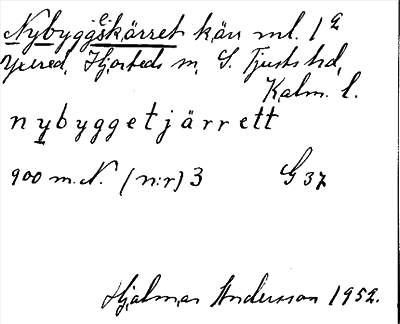 Nybyggeskärret kärr ml. 1a
Yxered, Hjorteds sn, S. Tjusts hd,
Kalm. l.
nybyggetjärrett
900 m. N. (n:r) 3 G 37
Hjalmar Andersson 1952.